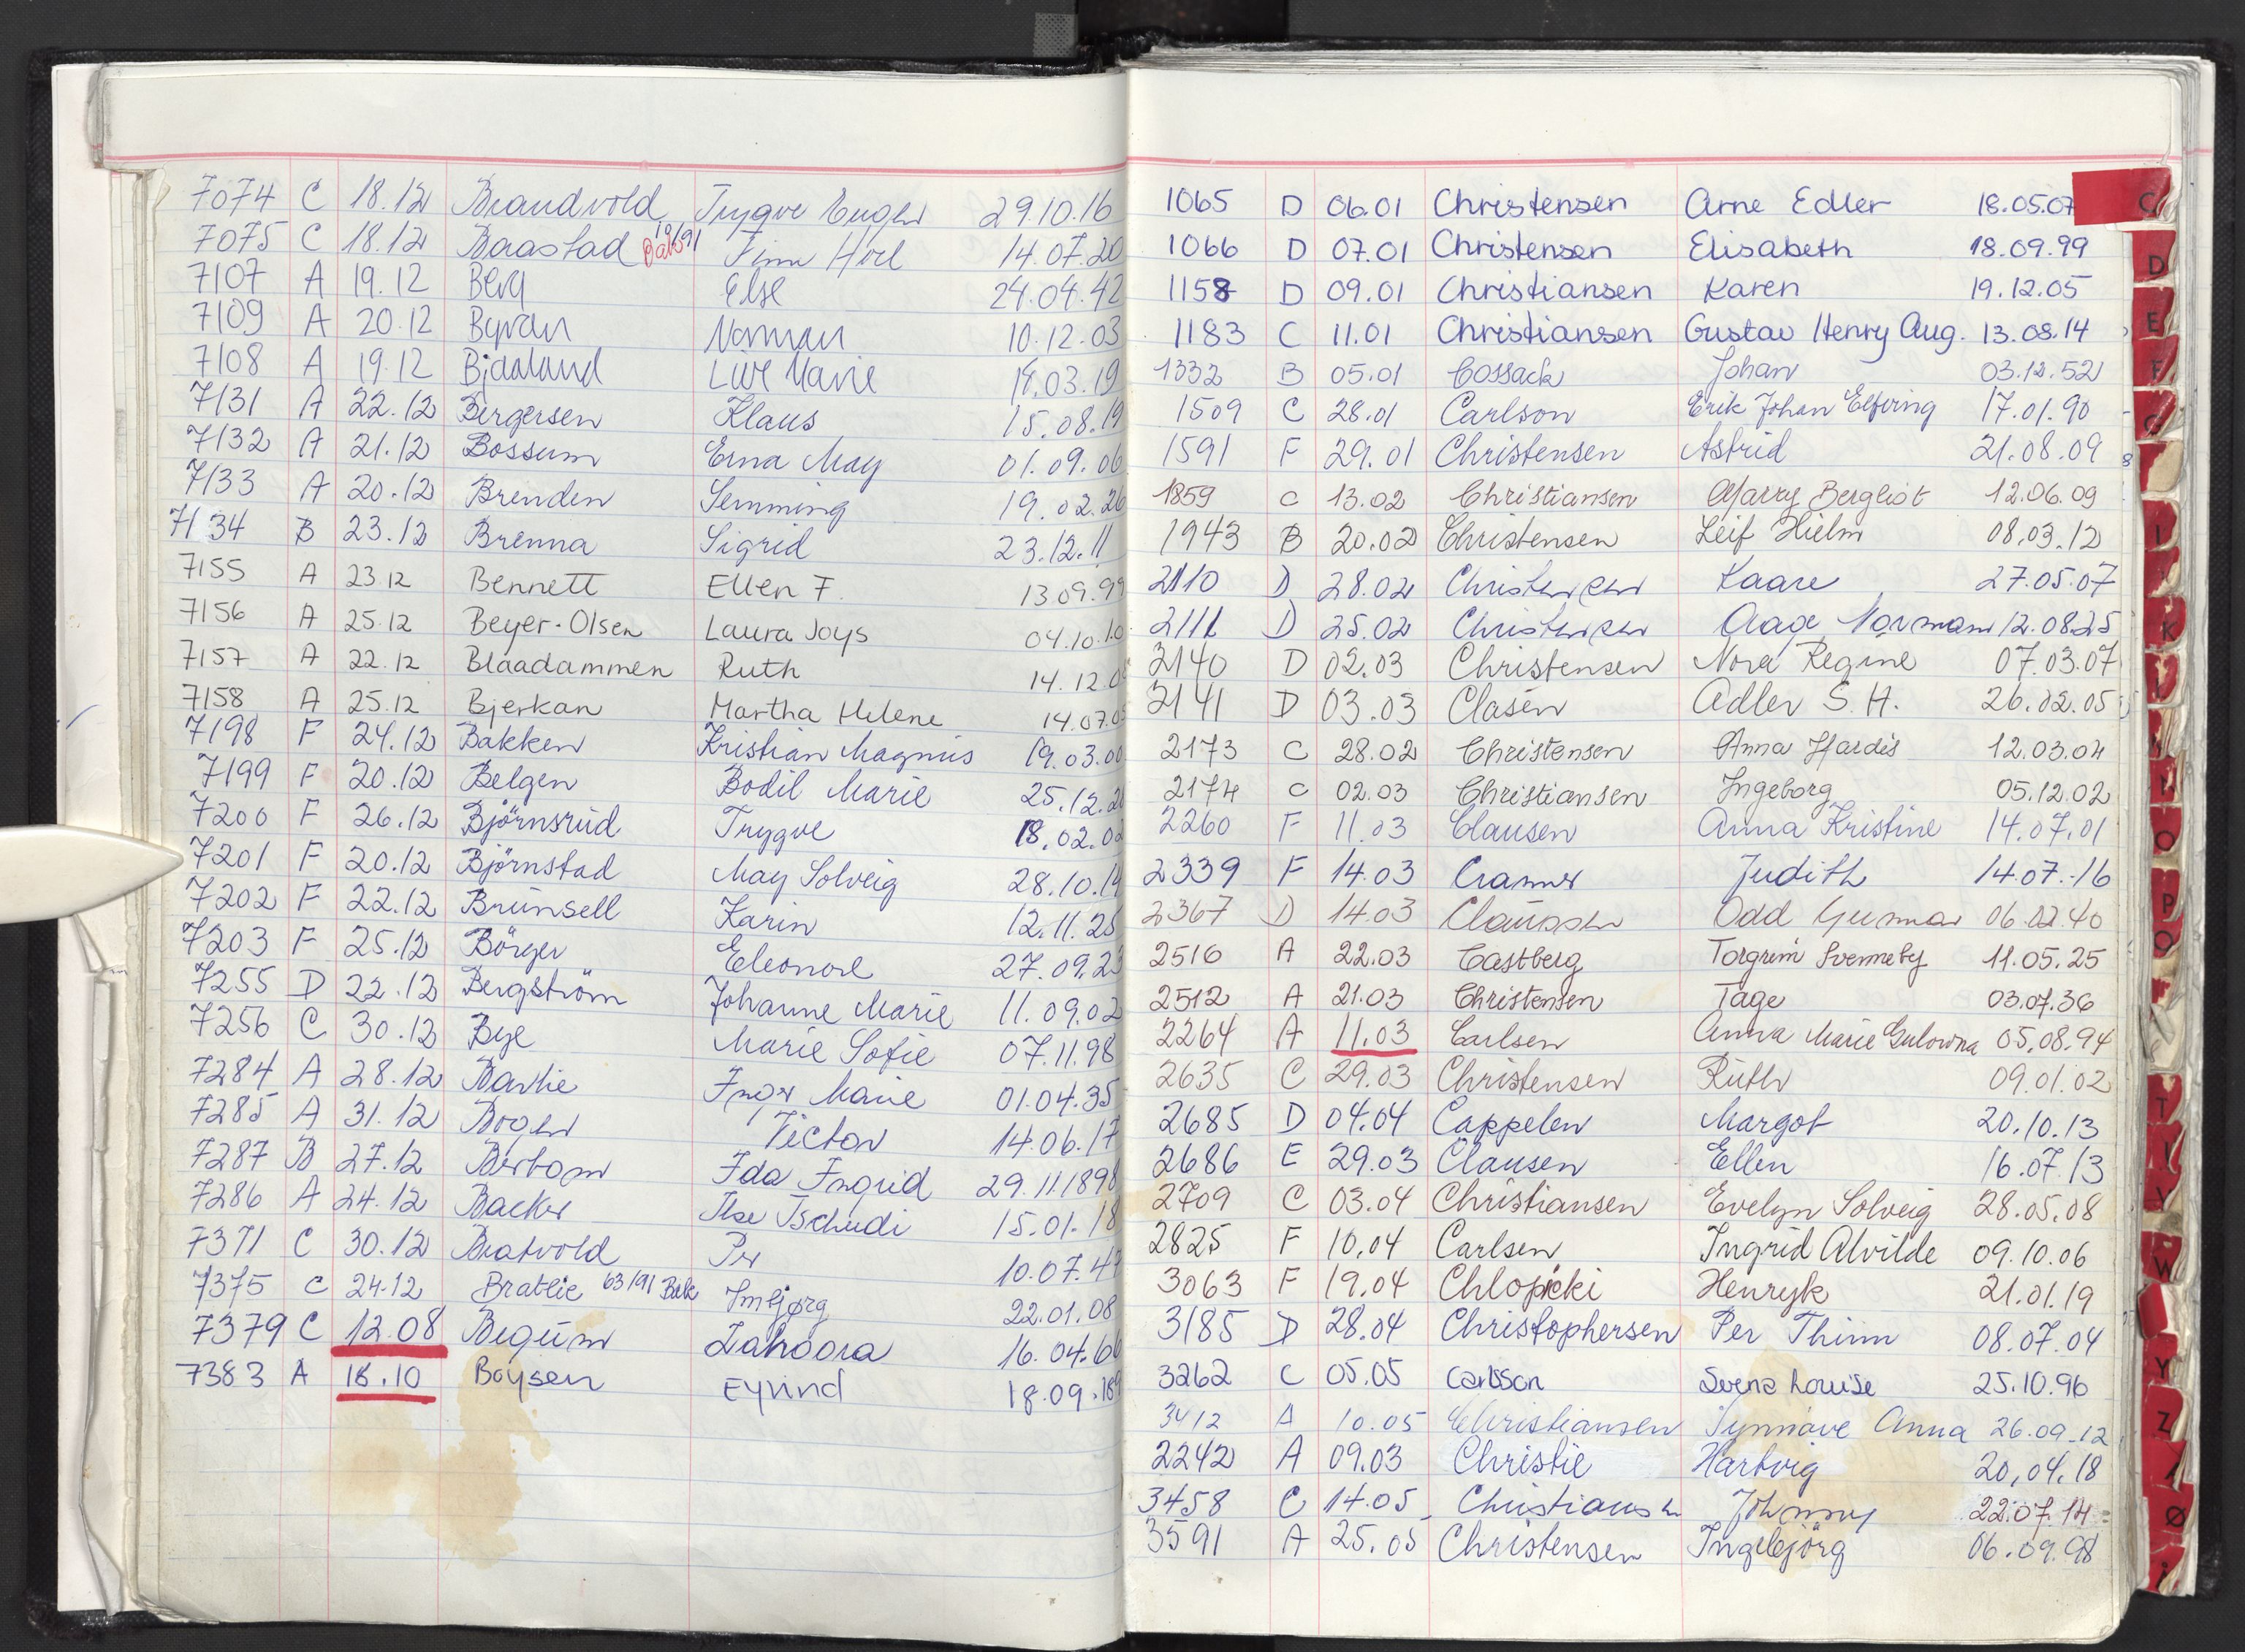 7074 C 18.12 Brandvold Trygve 29.10.16
7075 C 18.12 Baastad Finn 14.07.20
7107 A 19.12 Berg Else 24.04.42
7109 A 20.12 Norman 10.12.03
7108 A 19.12 Bjaaland Live Marie 14.03.19
7131 A 22.12 Bergersen Klaus 15.08.19
7132 A 21.12 Bossum Erna May 01.09.06
7133 A 20.12 Brenden Semming 19.02.26
7134 B 23.12 Brenna Sigrid 23.12.11
7155 A 23.12 Bennett Ellen F. 13.09.99
7156 A 25.12 Beyer-Olsen Laura Joys 04.10.10
7157 A 22.12 Blaadammen Ruth 14.12.0
7158 A 25.12 Bjerkan Martha Helene 14.07.0
7198 F 24.12 Bakken Kristian Magnus 19.03.00
7199 F 20.12 Belgen Bodil Marie 25.12.2
7200 F 26.12 Björnsrud Trygve 18.02.02
7201 F 20.12 Björnstad May Solveig 28.10.1
7202 F 22.12 Brunsell Karin 12.11.25
7203 F 25.12 Börger Eleonore 27.09.23
7255 D 22.12 Bergström Johanne Marie 11.09.02
7256 C 30.12 Bye Marie Sofie 07.11.98
7284 A 28.12 Barlie Inger Marie 01.04.35
7285 A 31.12 Boger Victor 14.06.17
7287 B 27.12 Berbom Ida Ingrid 29.11 1898
7286 A 24.12 Backer Else Tschudi 15.01.18
7371 C 30.12 Bratvold Per 10.07.4
7375 C 24.12 Bratlie 63/91 Bak Imbjørg 22.01.08
7379 C 12.08 Begum Zahoora 16.04.66
7383 A 18.10 Boysen Eyvind 18.09.189
1065 D 06.01 Christensen Arne Edler 18.05.07 C
1066 D 07.01 Christensen Elisabeth 18.09.99
1158 D 09.01 Christiansen Karen 19.12.05
1183 C 11.01 Christiansen Gustav Henry Aug. 13.08.14
1332 B 05.01 Cossack Johan 03.12.52
1509 C 28.01 Carlson Erik Johan Elfving 17.01.90
1591 F 29.01 Christensen Astrid 21.08.09
1859 C 13.02 Christiansen Marry Bergliot 12.06.09
1943 B 20.02 Christensen Leif Hielm 08.03.12
2110 D 28.02 Christensen Kaare 27.05.07
2111 D 25.02 Christensen Aage Normann 12.08.25
2140 D 02.03 Christensen Nora Regine 07.03.07
2141 D 03.03 Clasen Adler S. H. 26.02.05
2173 C 28.02 Christensen Anna Hjardis 12.03.04
2174 C 02.03 Christiansen Ingeborg 05.12.02
2260 F 11.03 Clausen Anna Kristine 14.07.01
2339 F 14.03 Cramer Judith 14.07.16
2367 D 14.03 Claussen Odd Gunnar 06.02.40
2516 A 22.03 Castberg Torgrim Svenneby 11.05.25
2512 A 21.03 Christensen Tage 03.07.36
2264 A 11.03 Carlsen Anna Marie Gulowna 05.08.94
2635 C 29.03 Christensen Ruth 09.01.02
2685 D 04.04 Cappelen Margot 20.10.13
2686 E 29.03 Clausen Ellen 16.07.13
2709 C 03.04 Christiansen Evelyn Solveig 28.05.08
2825 F 10.04 Carlsen Ingrid Alvilde 09.10.06
3063 F 19.04 Chlopicki Henryk 21.01.19
3185 D 28.04 Christophersen Per Thinn 08.07.04
3262 C 05.05 Carlsson Svena Louise 25.10.96
3412 A 10.05 Christiansen Synnøve Anna 26.09.12
2242 A 09.03 Christie Hartvig 20.04.18
3458 C 14.05 Christiansen Johnny 22.07.14
3591 A 25.05 Christensen Ingebjörg 06.09.98
D
E
F
I
K
O
P
T
V
W
Y
Z
Ø